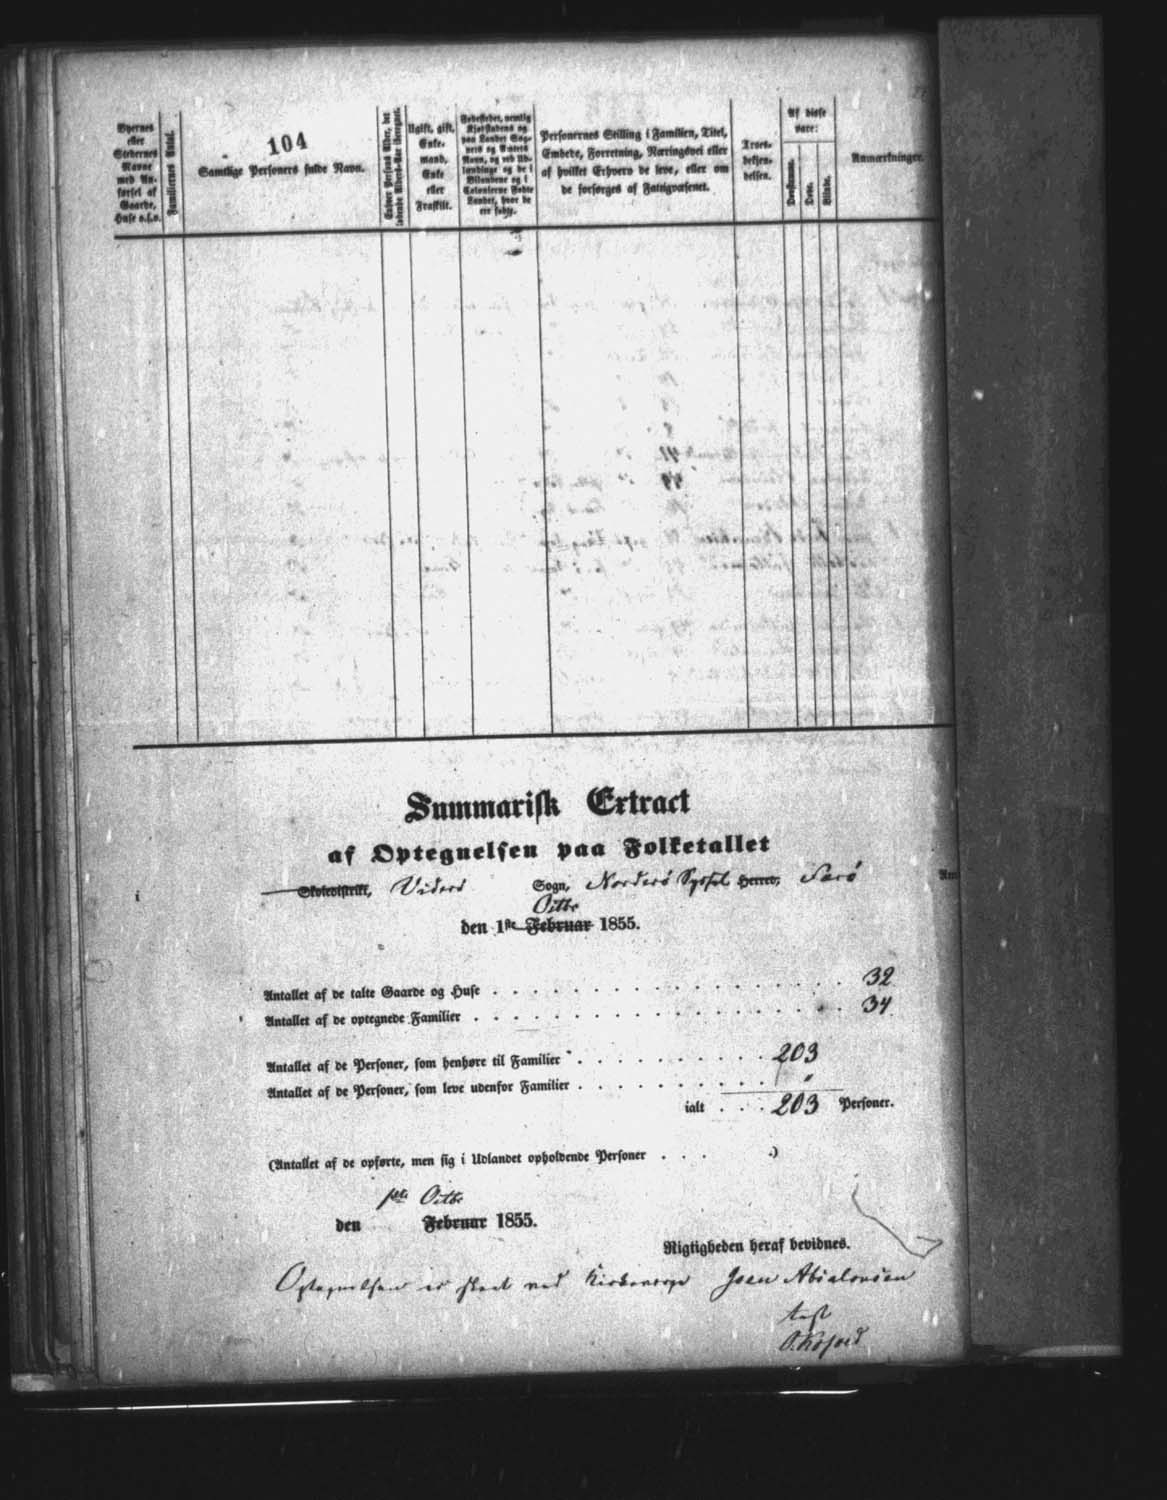 104
Byernes
eller
Stedernes
Navne
med An-
førsel af
Gaarde,
Huse o.s.v.
Familiernes Antal.
Samtlige Personers fulde Navn.
Enhver Persons Alder, det
løbende Alders-Aar iberegnet.
Ugift, gift,
Enke-
mand,
Enke
eller
Fraskilt.
Fødestedet, nemlig
Kjøbstadens og
paa Landet Sog-
nets og Amtets
Navn, og ved Ud-
lændinge og de i
Bilandene og i
Colonierne Fødte
Landet, hvor de
ere fødte.
Personernes Stilling i Familien, Titel,
Embede, Forretning, Næringsvei eller
af hvilket Erhverv de leve, eller om
de forsørges af Fattigvæsenet.
Troes-
bekjen-
delsen.
Af disse
vare:
Døvstumme.
Døve.
Blinde.
Anmærkninger.
Summarisk Extract
af Optegnelsen paa Folketallet
i Skoledistrikt, Viderø Sogn, Norderø Syssel Herred, Færø Am
Octbr
den 1ste Februar 1855.
Antallet af de talte Gaarde og Huse . . . 32
Antallet af de optegnede Familier . . . 34
Antallet af de Personer, som henhøre til Familier . . . 203
Antallet af de Personer, som leve udenfor Familier . . . "
ialt . . . 203 Personer.
(Antallet af de opførte, men sig i Udlandet opholdende Personer . . . .)
Octbr
den Februar 1855.
Rigtigheden heraf bevidnes.
Optegnelsen er skeet ved Kirkeværge Joen Absalonsen
test